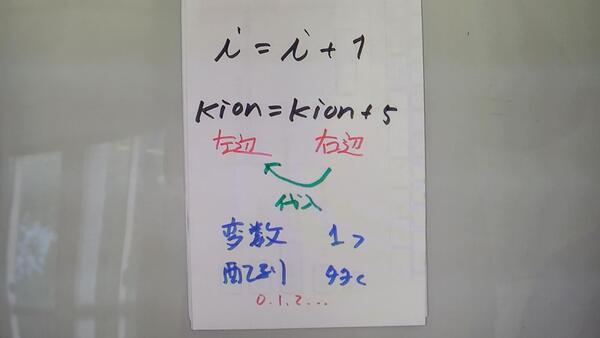 i = i + 1
kion = kion + 5
左辺 右辺
代入
変数 1つ
配列 たく
0.1.2...